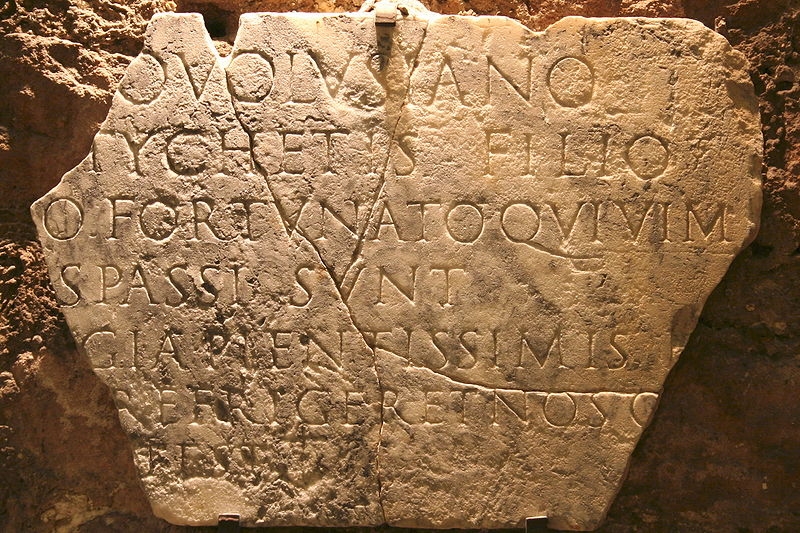 O VOLUSIANO
TYCHETIS FILIO
O FORTVNATO QVI VIM
S PASSI SVNT
GIA PIENTISSIMIS
REFRIGERET NOS